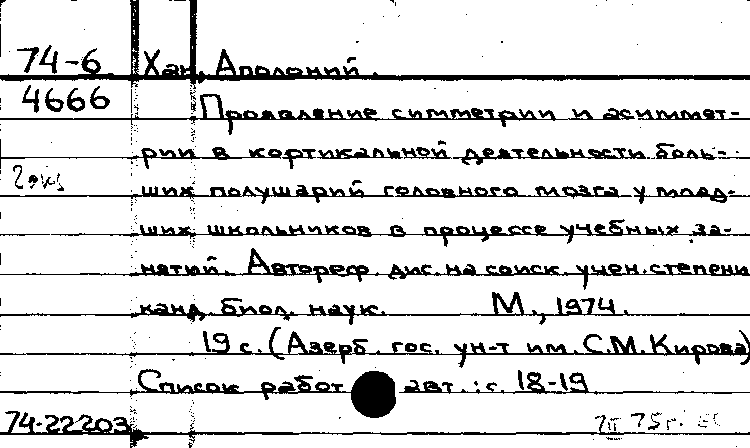 74-6 Хан, Аполоний.
4666 Проявление симметрии и асиммет-
рии в кортикальной деятельности боль-
2 экз
ших полушарий головного мозга у млад-
ших школьников в процессе учебных за-
нятий. Автореф. дис. на соиск. учен. степени
канд. биол. наук. М., 1974.
19 с. (Азерб. гос. ун-т им. С.М. Кирова)
Список работ авт.: с. 18-19
74-22203